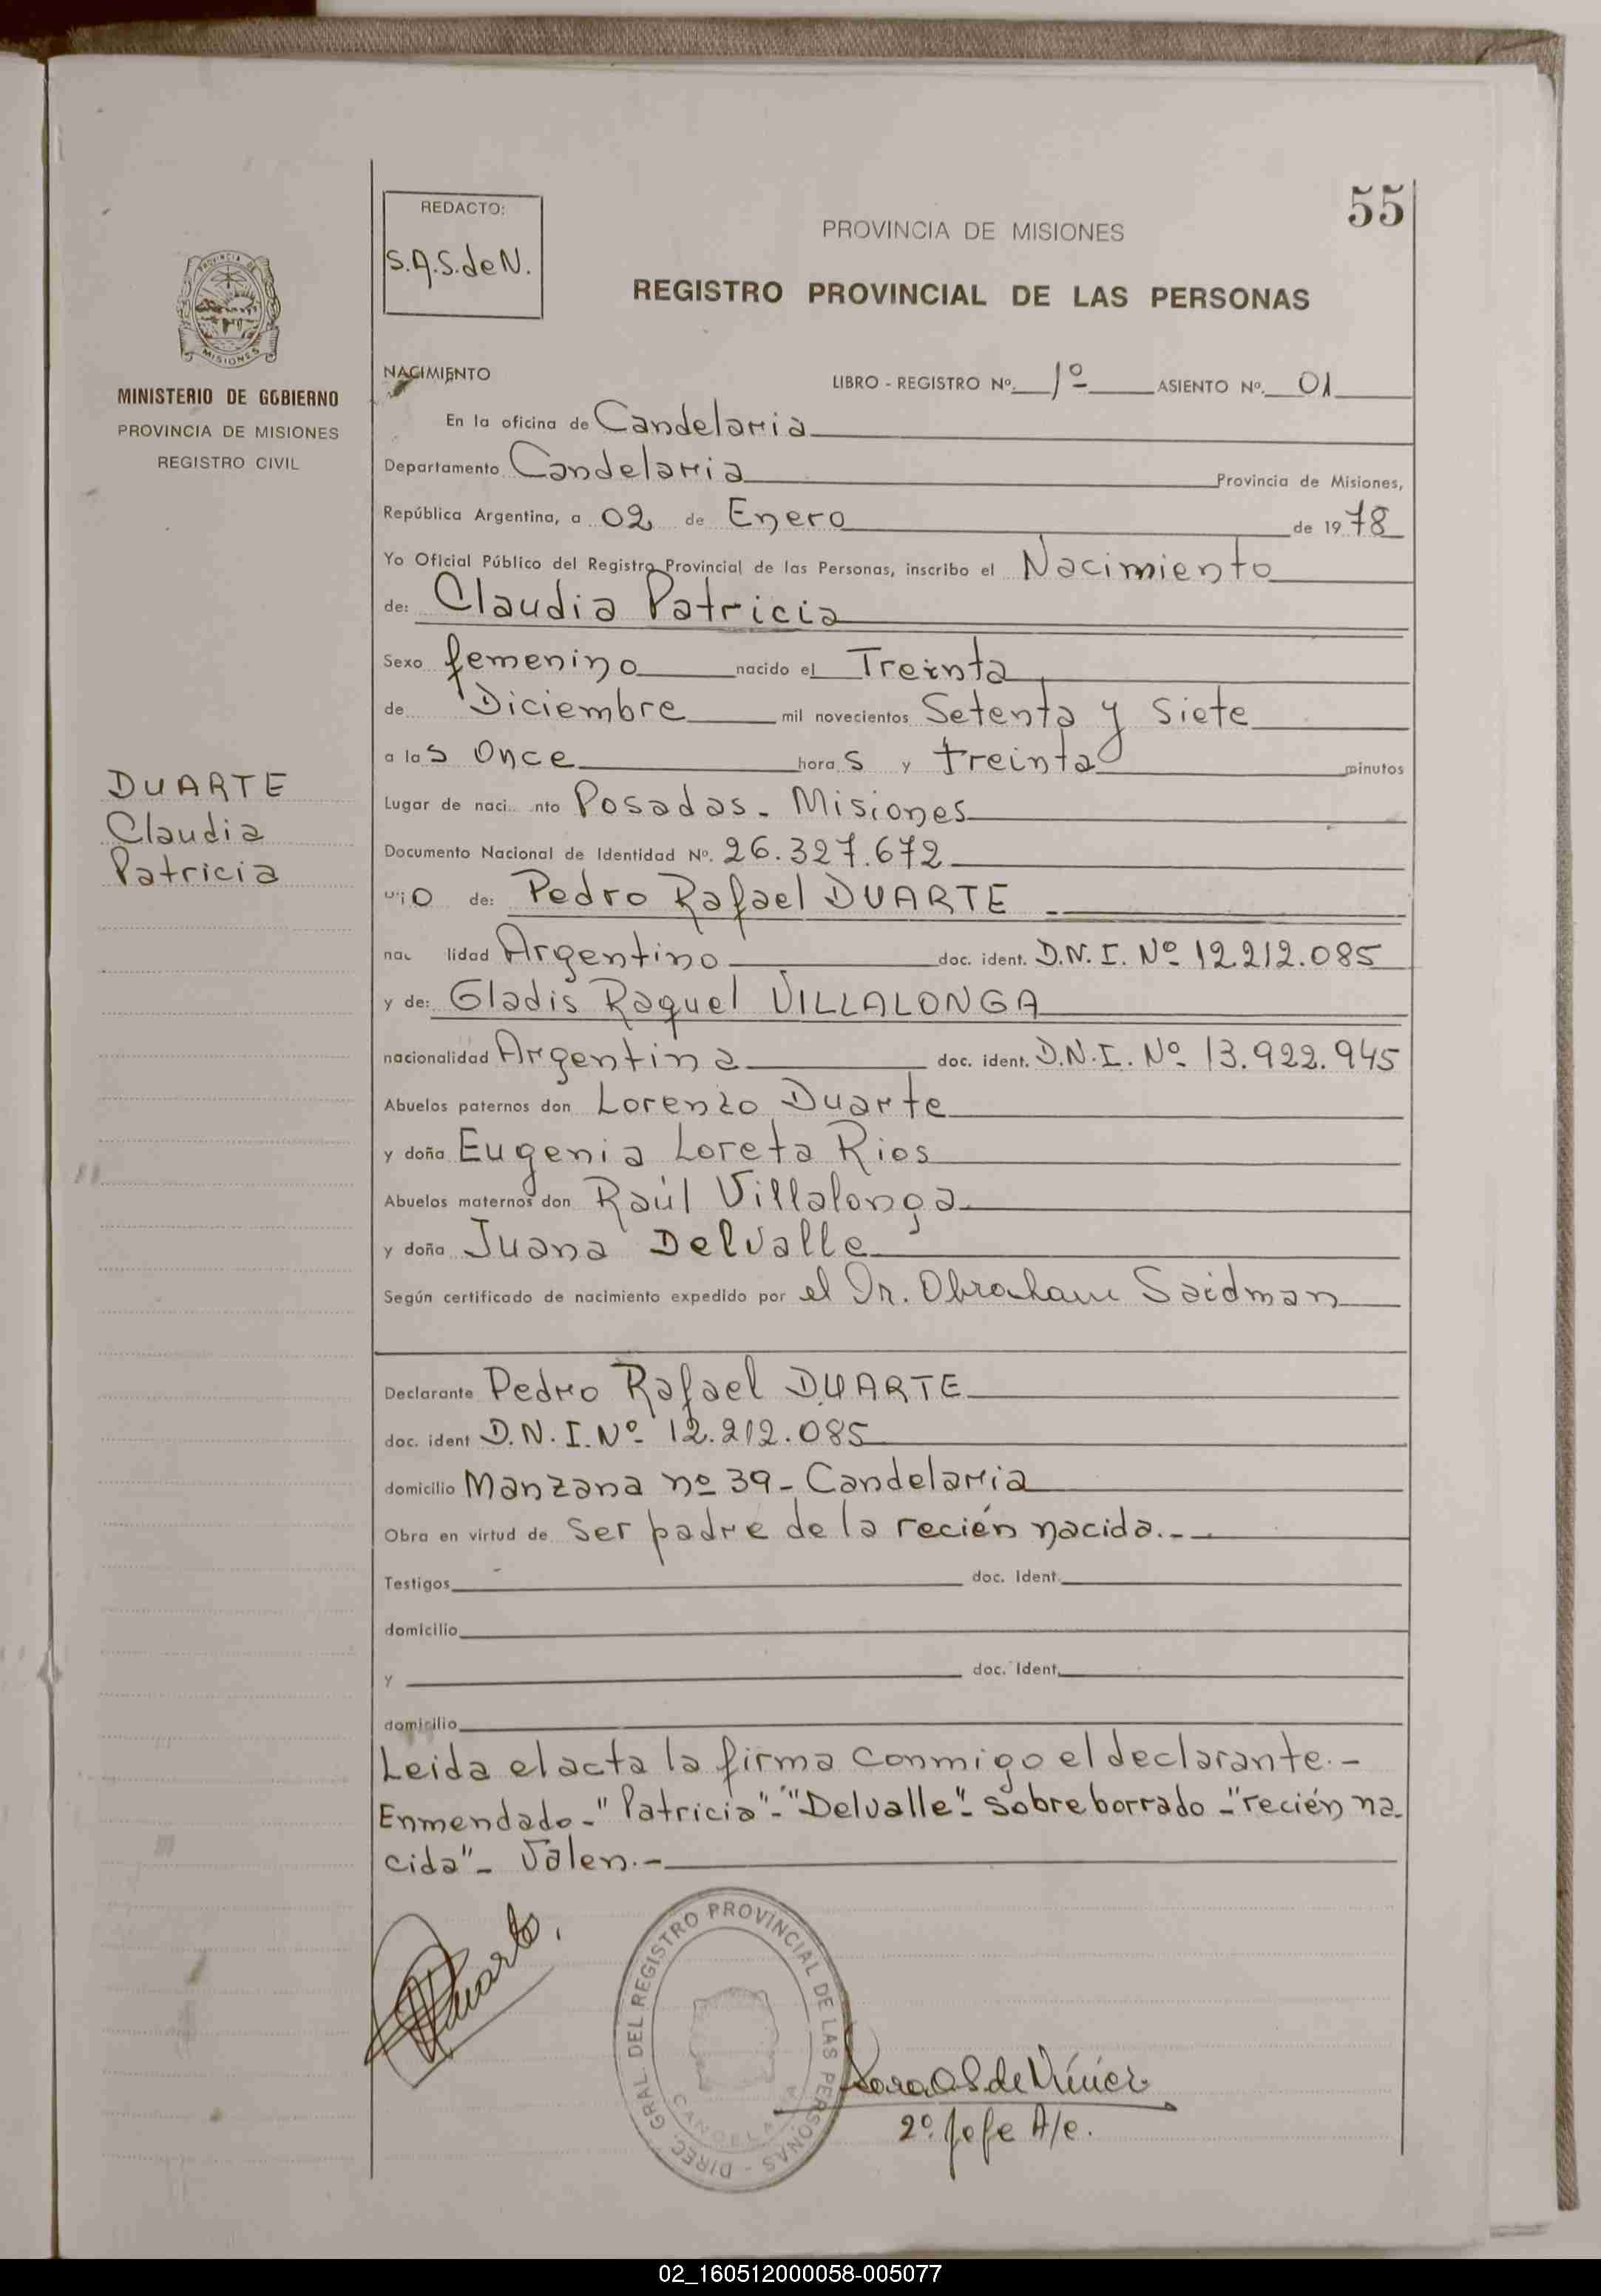 55
REDACTO:
S.A.S.deN.
PROVINCIA DE MISIONES
REGISTRO PROVINCIAL DE LAS PERSONAS
PROVINCIA DE
MISIONES
MINISTERIO DE GOBIERNO
PROVINCIA DE MISIONES
REGISTRO CIVIL
NACIMIENTO
LIBRO - REGISTRO Nº. 1º ASIENTO Nº. 01
En la oficina de Candelaria
Departamento Candelaria Provincia de Misiones,
República Argentina, a 02 de Enero de 19 78
Yo Oficial Público del Registro Provincial de las Personas, inscribo el Nacimiento
de: Claudia Patricia
Sexo femenino nacido el Treinta
de Diciembre mil novecientos Setenta y Siete
a las Once horas y treinta minutos
DUARTE
Claudia
Patricia
Lugar de naci nto Posadas - Misiones
Documento Nacional de Identidad Nº. 26.327.672
ijo de: Pedro Rafael DUARTE
nac lidad Argentino doc. ident. D.N.I. Nº 12.212.085
y de: Gladis Raquel VILLALONGA
nacionalidad Argentina doc. ident. D.N.I. Nº 13.922.945
Abuelos paternos don Lorenzo Duarte
y doña Eugenia Loreta Rios
Abuelos maternos don Raúl Villalonga
y doña Juana Delvalle
Según certificado de nacimiento expedido por el Dr. Abraham Saidman
Declarante Pedro Rafael DUARTE
doc. ident D.N.I. Nº 12.212.085
domicilio Manzana nº 39 - Candelaria
Obra en virtud de ser padre de la recién nacida.-
Testigos doc. Ident.
domicilio
y doc. Ident.
domicilio
Leida el acta la firma conmigo el declarante.-
Enmendado-"Patricia"-"Delvalle"- sobreborrado -"recién na-
cida"- Valen.-
Duarte.
DIREC. GRAL. DEL REGISTRO PROVINCIAL DE LAS PERSONAS -
Sara A S de Núñez
2º. Jefe A/c.
02_160512000058-005077